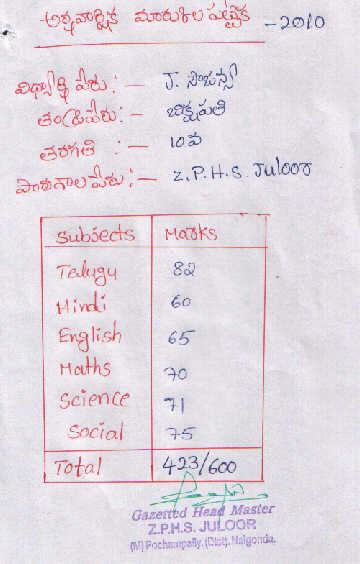 అర్ధవార్షిక మార్కుల పట్టిక - 2010
విద్యార్థి పేరు:- J. సౌజన్య
తండ్రిపేరు:- బిక్షపతి
తరగతి :- 10వ
పాఠశాల పేరు:- Z.P.H.S. Juloor
Subjects Marks
Telugu 82
Hindi 60
English 65
Maths 70
Science 71
Social 75
Total 423/600
Gazetted Head Master
Z.P.H.S. JULOOR
(M) Pochampally, (Dist). Nalgonda.